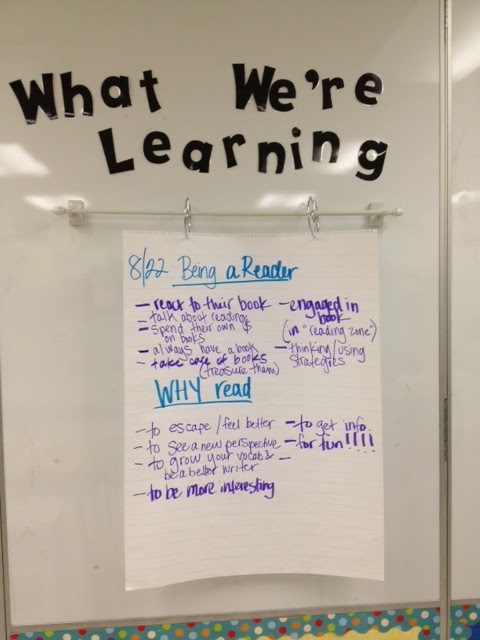 What We're
Learning
8/22 Being a Reader
- react to their book
- talk about reading
- spend their own $
on books
- always have a book
- take care of books
(treasure them)
- engaged in
book
(in "reading zone")
- thinking/using
strategies
WHY read
- to escape/feel better
- to see a new perspective
- to grow your vocab &
be a better writer
- to be more interesting
- to get info.
- for fun!!!!
-